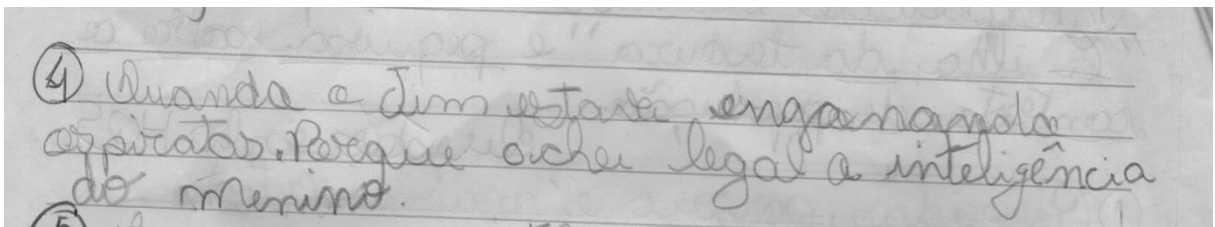 ④ Quando o Jim estava enganando
os piratas. Porque achei legal a inteligência
do menino.
⑤